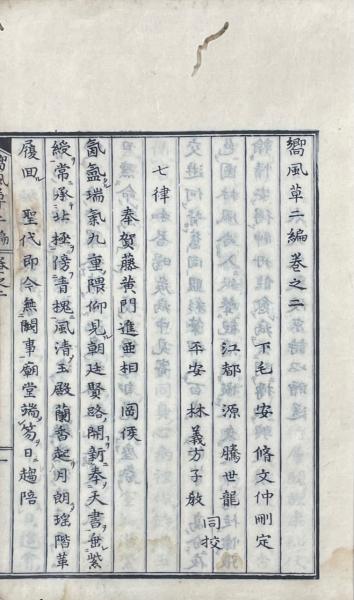 嚮風草二編卷之二
下毛 安 脩文仲刪定
江都 源 騰世龍
平安 林 義方子殷 同挍
七律
奉賀藤黃門進亞相 岡侯
氤氳瑞氣九重隈仰見朝廷賢路開新奉天書垂紫
綬常承北極傍青槐風清玉殿蘭香起月朗瑤階革
履回 聖代即今無闕事廟堂端笏日趨陪